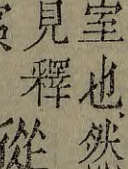 室也然
見釋從